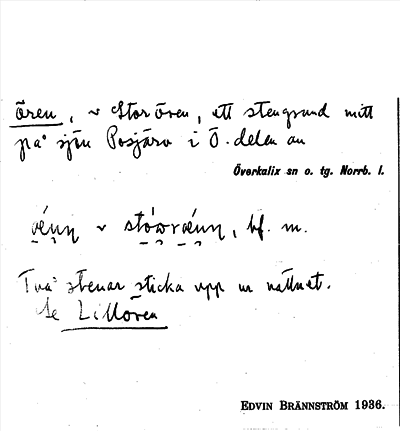 ören, ~ Storören, ett stengrund mitt
på sjön Posjärv i Ö. delen av
Överkalix sn o. tg. Norrb. l.
bf. m.
Två stenar sticka upp ur vattnet.
Se Lillören
EDVIN BRÄNNSTRÖM 1936.